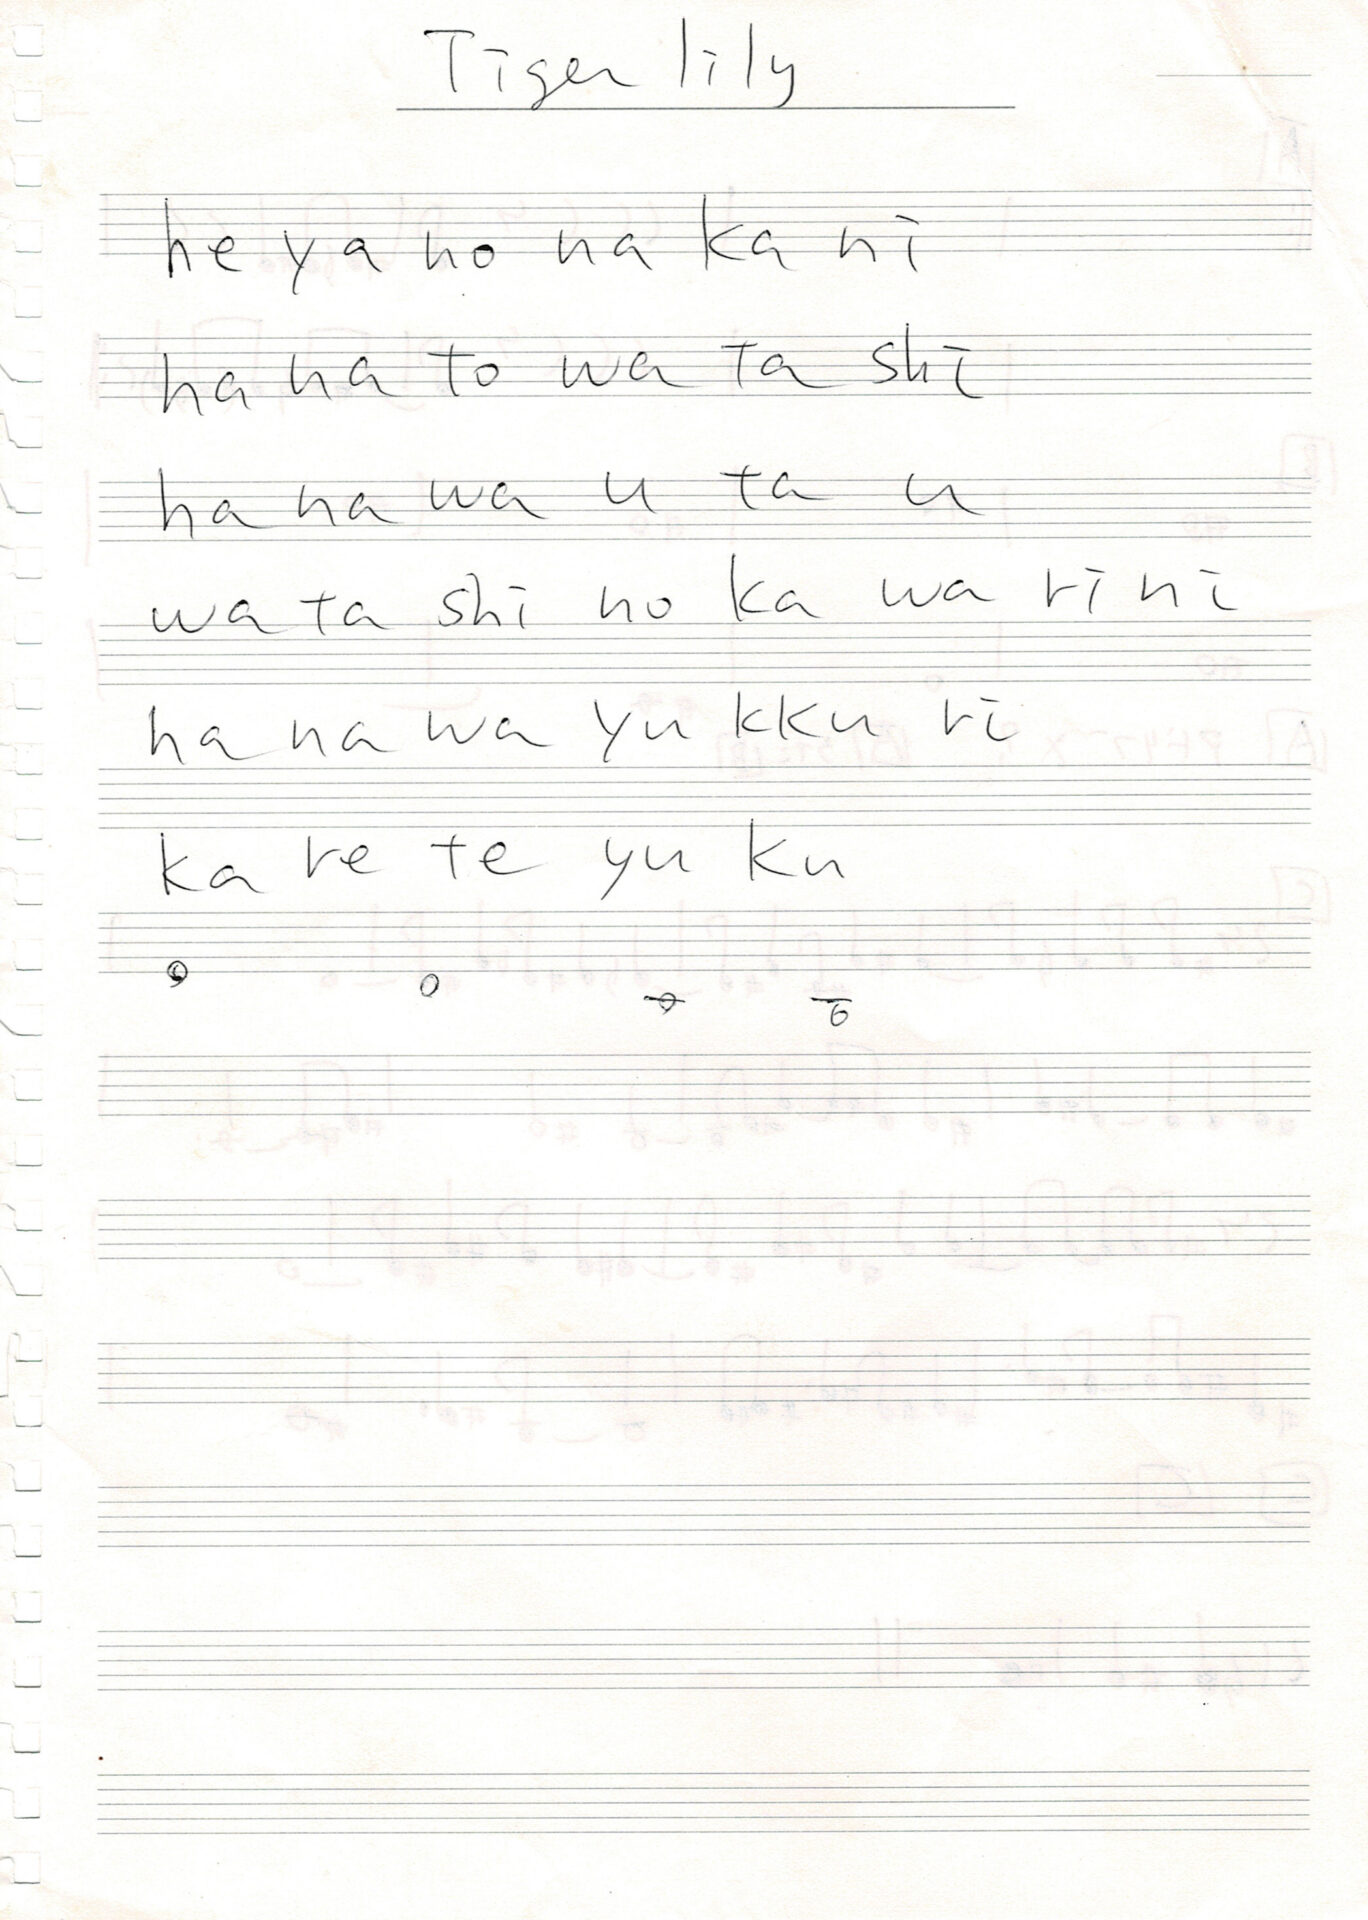 Tiger lily
he ya no na ka ni
ha na to wa ta shi
ha na wa u ta u
wa ta shi no ka wa ri ni
ha na wa yu kku ri
ka re te yu ku